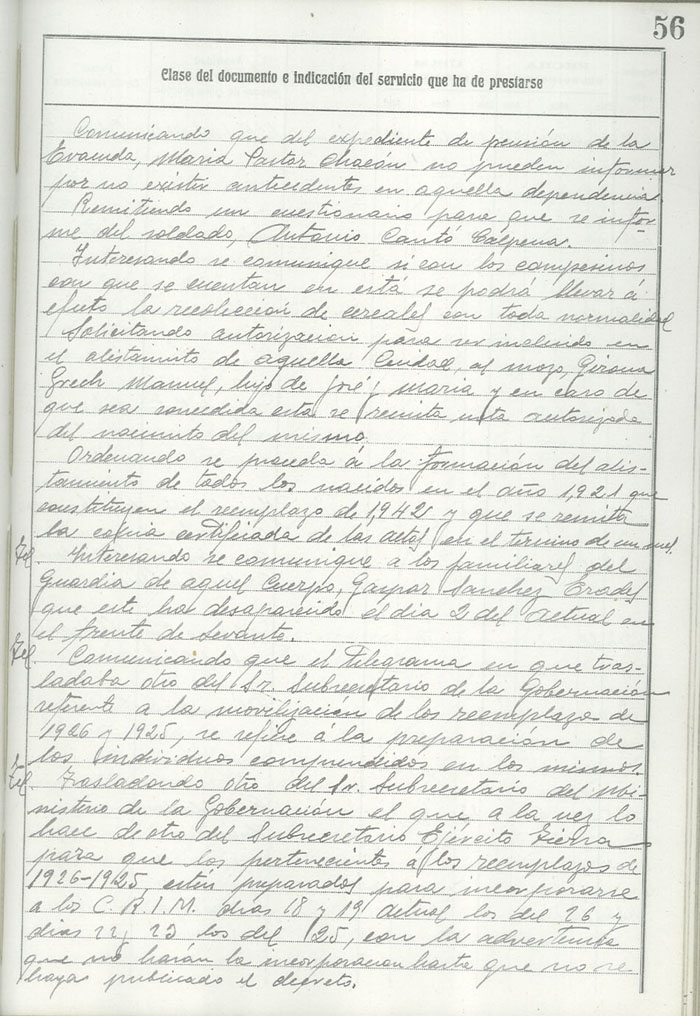 56
Clase del documento e indicación del servicio que ha de prestarse
Comunicando que del expediente de pensión de la
Evacuada, Maria Pastor Chacón no pueden informar
por no existir antecedentes en aquella dependencia.
Remitiendo un cuestionario para que se infor-
me del soldado, Antonio Cantó Calpena.
Interesando se comunique si con los campesinos
con que se cuentan en está se podrá llevar á
efecto la recolección de cereales con toda normalidad
Solicitando autorizacion para ser incluido en
el alistamito de aquella Ciudad, al mozo, Girona
Grech Manuel, hijo de José y Maria y en caso de
que sea concedida esta se remita nota autorizada
del nacimito del mismo.
Ordenando se proceda á la formación del alis-
tamiento de todos los nacidos en el año 1,921 que
constituyen el reemplazo de 1,942 y que se remita
la copia certificada de las actas en el termino de un mes.
Tel. Interesando se comunique a los familiares del
Guardia de aquel Cuerpo, Gaspar Sanchez
que este ha desaparecido el dia 2 del actual en
el frente de Levante.
Tel. Comunicando que el telegrama en que tras-
ladaba otro del Sr. Subsecretario de la Gobernación
referente a la movilizacion de los reemplazos de
1926 y 1925, se refiere á la preparación de
los individuos comprendidos en los mismos.
Tel. Trasladando otro del Sr. Subsecretario del Mi-
nisterio de la Gobernación el que a la vez lo
hace de otro del Subsecretario Ejército Tierra
para que los pertenecientes á los reemplazos de
1926-1925, estén preparados para incorporarse
a los C.R.I.M. dias 18 y 19 actual los del 26 y
dias 22, 23 los del 25, con la advertencia
que no harán la incorporacion hasta que no se
haya publicado el decreto.